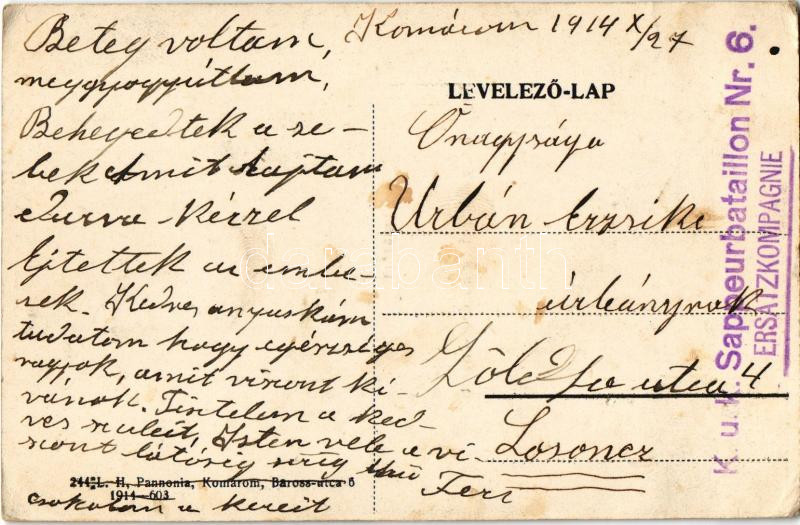 Komárom 1914 X/27
Beteg voltam,
meggyogyúltam,
Behegedtek a se-
bek Amit rajtam
durva kézzel
Ejtettek az embe-
rek. Kedves anyuskám
tudatom hogy egészséges
vagyok, amit viszont ki-
vánok. Tisztelem a ked-
ves szüleit, Isten vele a vi
szont látásig hű
Feri
csokolom a kezeit
LEVELEZŐ-LAP
Őnagysága
Urbán Erzsike
úrhánynak
Zöld fa utca 4
Losoncz
K. u. k. Sappeurbataillon Nr. 6.
ERSATZKOMPAGNIE
244 L. H, Pannonia, Komárom, Baross-utca 6
1914-603
darabanth